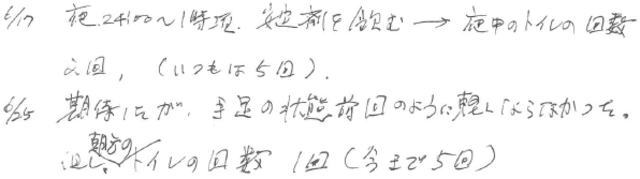 6/17 夜.24:00~1時頃. 安定剤を飲む → 夜中のトイレの回数
2回, (いつもは5回).
6/25 期待したが, 手足の状態前回のように軽くならなかった。
但し、朝方のトイレの回数 1回(今まで5回)